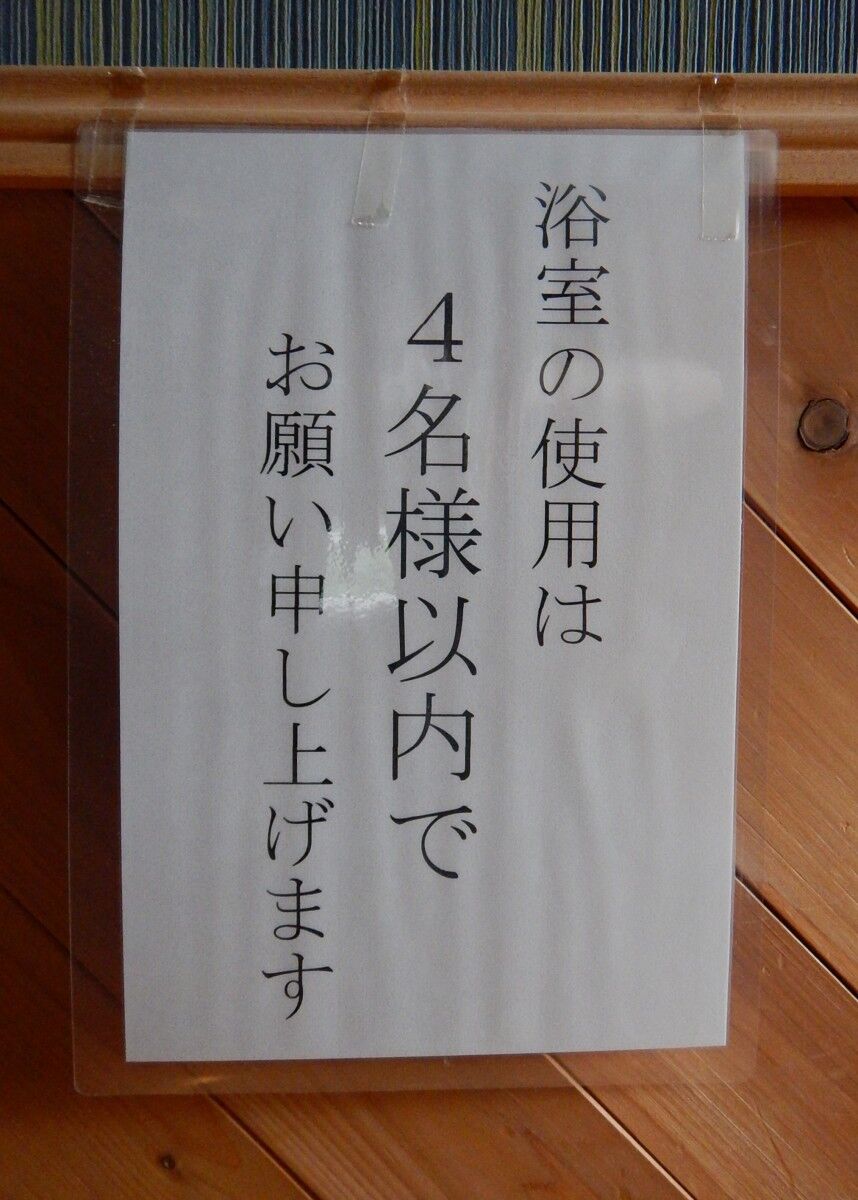 浴室の使用は
4名様以内で
お願い申し上げます